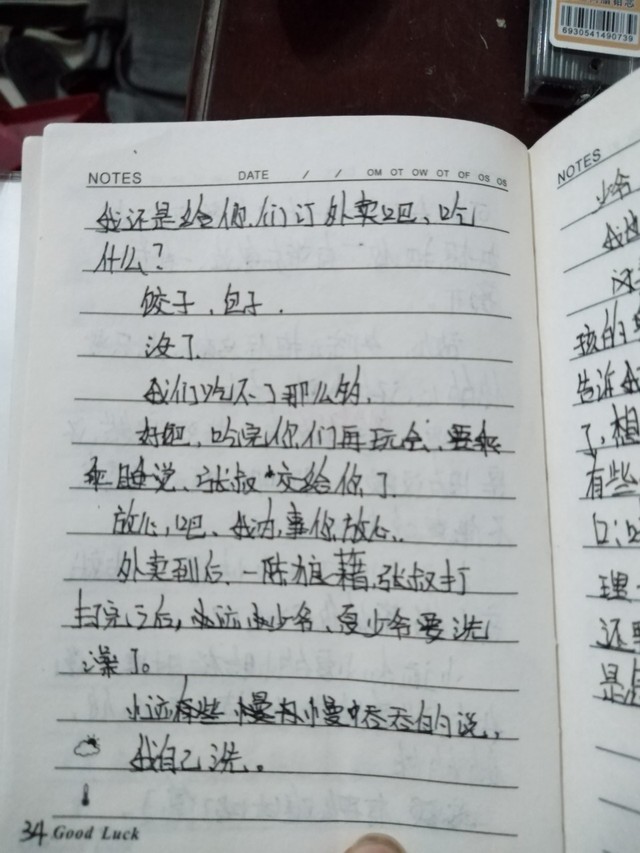 6930541490739
NOTES DATE / / OM OT OW OT OF OS OS
我还是给你们订外卖吧、吃
什么?
饺子、包子.
没了.
我们吃不了那么多,
好吧、吃完你们再玩会、
乖睡觉、张叔*交给你了.
放心,吧、我办事你放心.
外卖到后、一阵狼藉,张叔打
扫完之后,小远小少爷、夏少爷要洗
澡了。
小远有些慢慢吞吞的说,
我自己洗。
34 Good Luck
NOTES
少爷
孩的
告诉我
了,想
有些
理
还要
是